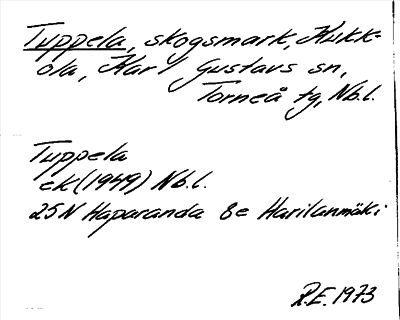 Tuppela, skogsmark, Kukk-
ola, Karl Gustavs sn,
Torneå tg, Nb.l.
Tuppela
ek(1949) Nb.l.
25N Haparanda 8e Harilanmäki
R.E. 1973